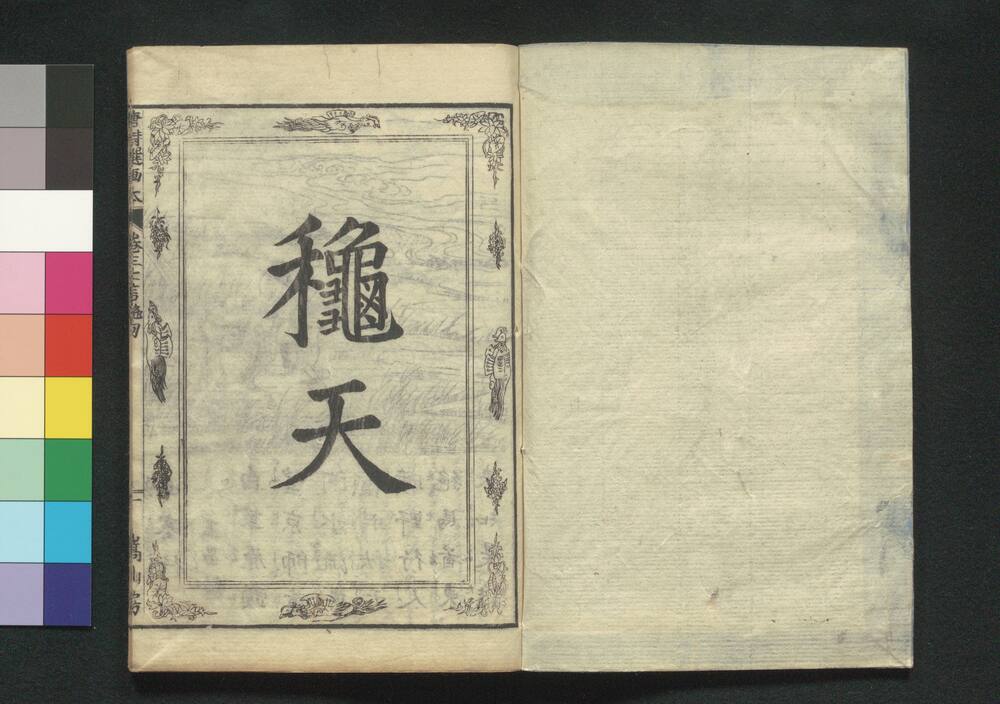 龝天
唐詩選画本 卷三七言絶句 一 嵩山房